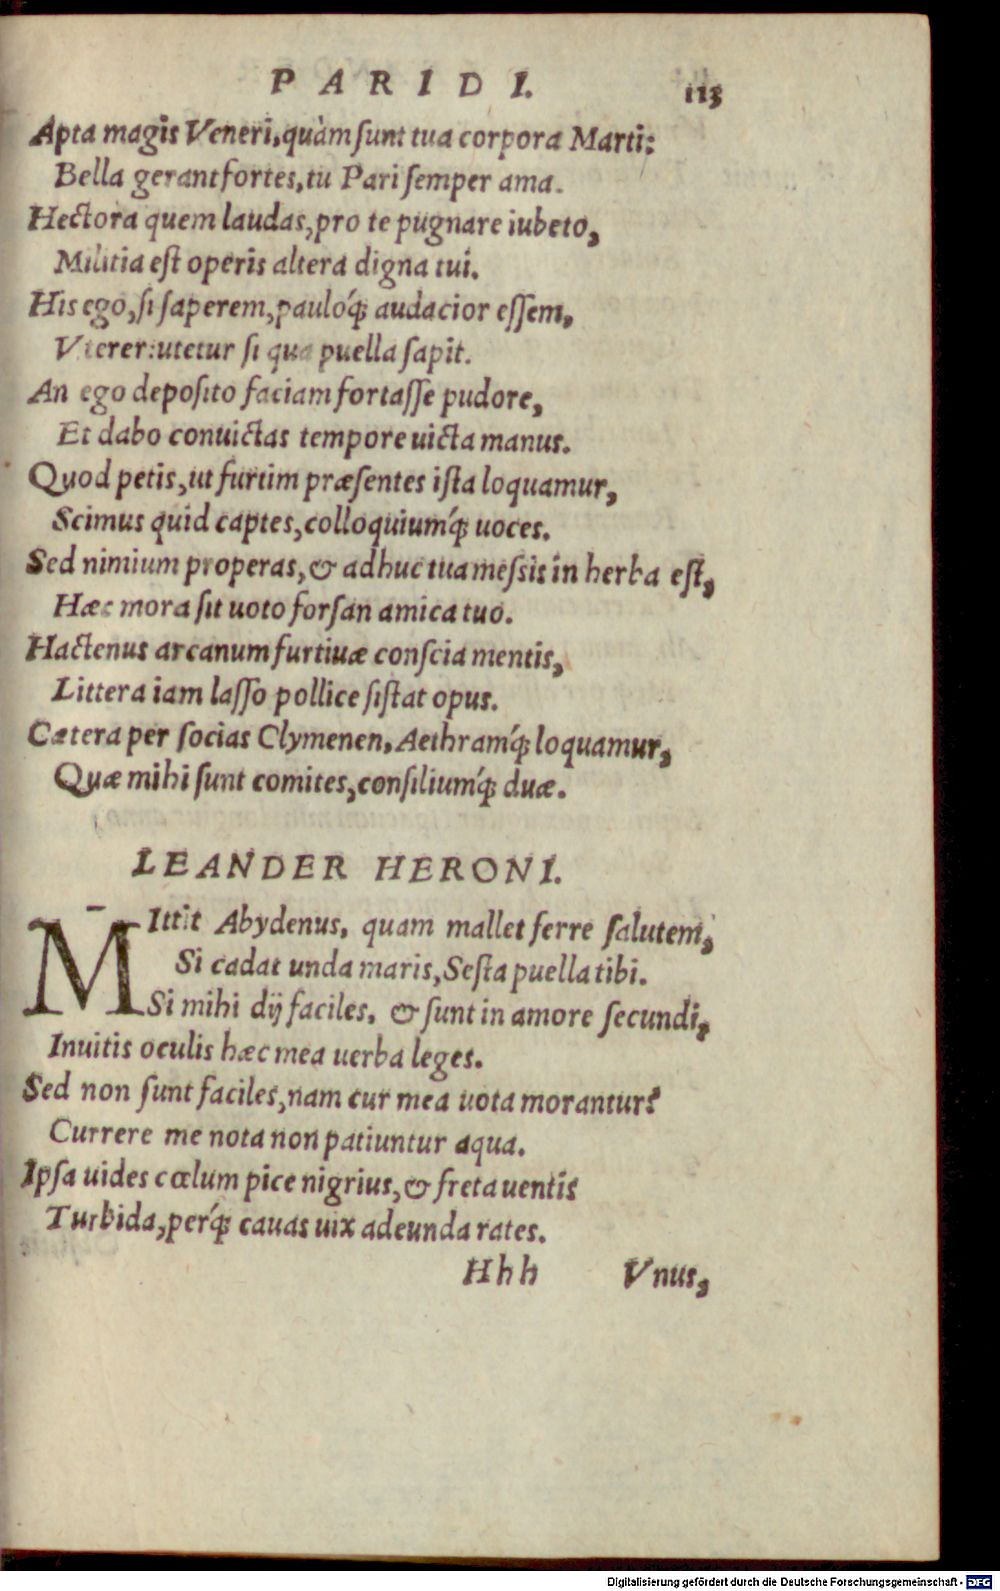 PARIDI. 113
Apta magis Veneri, quàm sunt tua corpora Marti:
Bella gerant fortes, tu Pari semper ama.
Hectora quem laudas, pro te pugnare iubeto,
Militia est operis altera digna tui.
His ego, si saperem, pauloq́; audacior essem,
Vterer: utetur si qua puella sapit.
An ego deposito faciam fortasse pudore,
Et dabo conuictas tempore uicta manus.
Quod petis, ut furtim præsentes ista loquamur,
Scimus quid captes, colloquiumq́; uoces.
Sed nimium properas, & adhuc tua messis in herba est,
Hæc mora sit uoto forsan amica tuo.
Hactenus arcanum furtiuæ conscia mentis,
Littera iam lasso pollice sistat opus.
Cætera per socias Clymenen, Aethramq́; loquamur,
Quæ mihi sunt comites, consiliumq́; duæ.
LEANDER HERONI.
MIttit Abydenus, quam mallet ferre salutem,
Si cadat unda maris, Sesta puella tibi.
Si mihi dij faciles, & sunt in amore secundi,
Inuitis oculis hæc mea uerba leges.
Sed non sunt faciles, nam cur mea uota morantur?
Currere me nota non patiuntur aqua.
Ipsa uides cœlum pice nigrius, & freta uentis
Turbida, perq́; cauas uix adeunda rates.
Hhh Vnus,
Digitalisierung gefördert durch die Deutsche Forschungsgemeinschaft - DFG